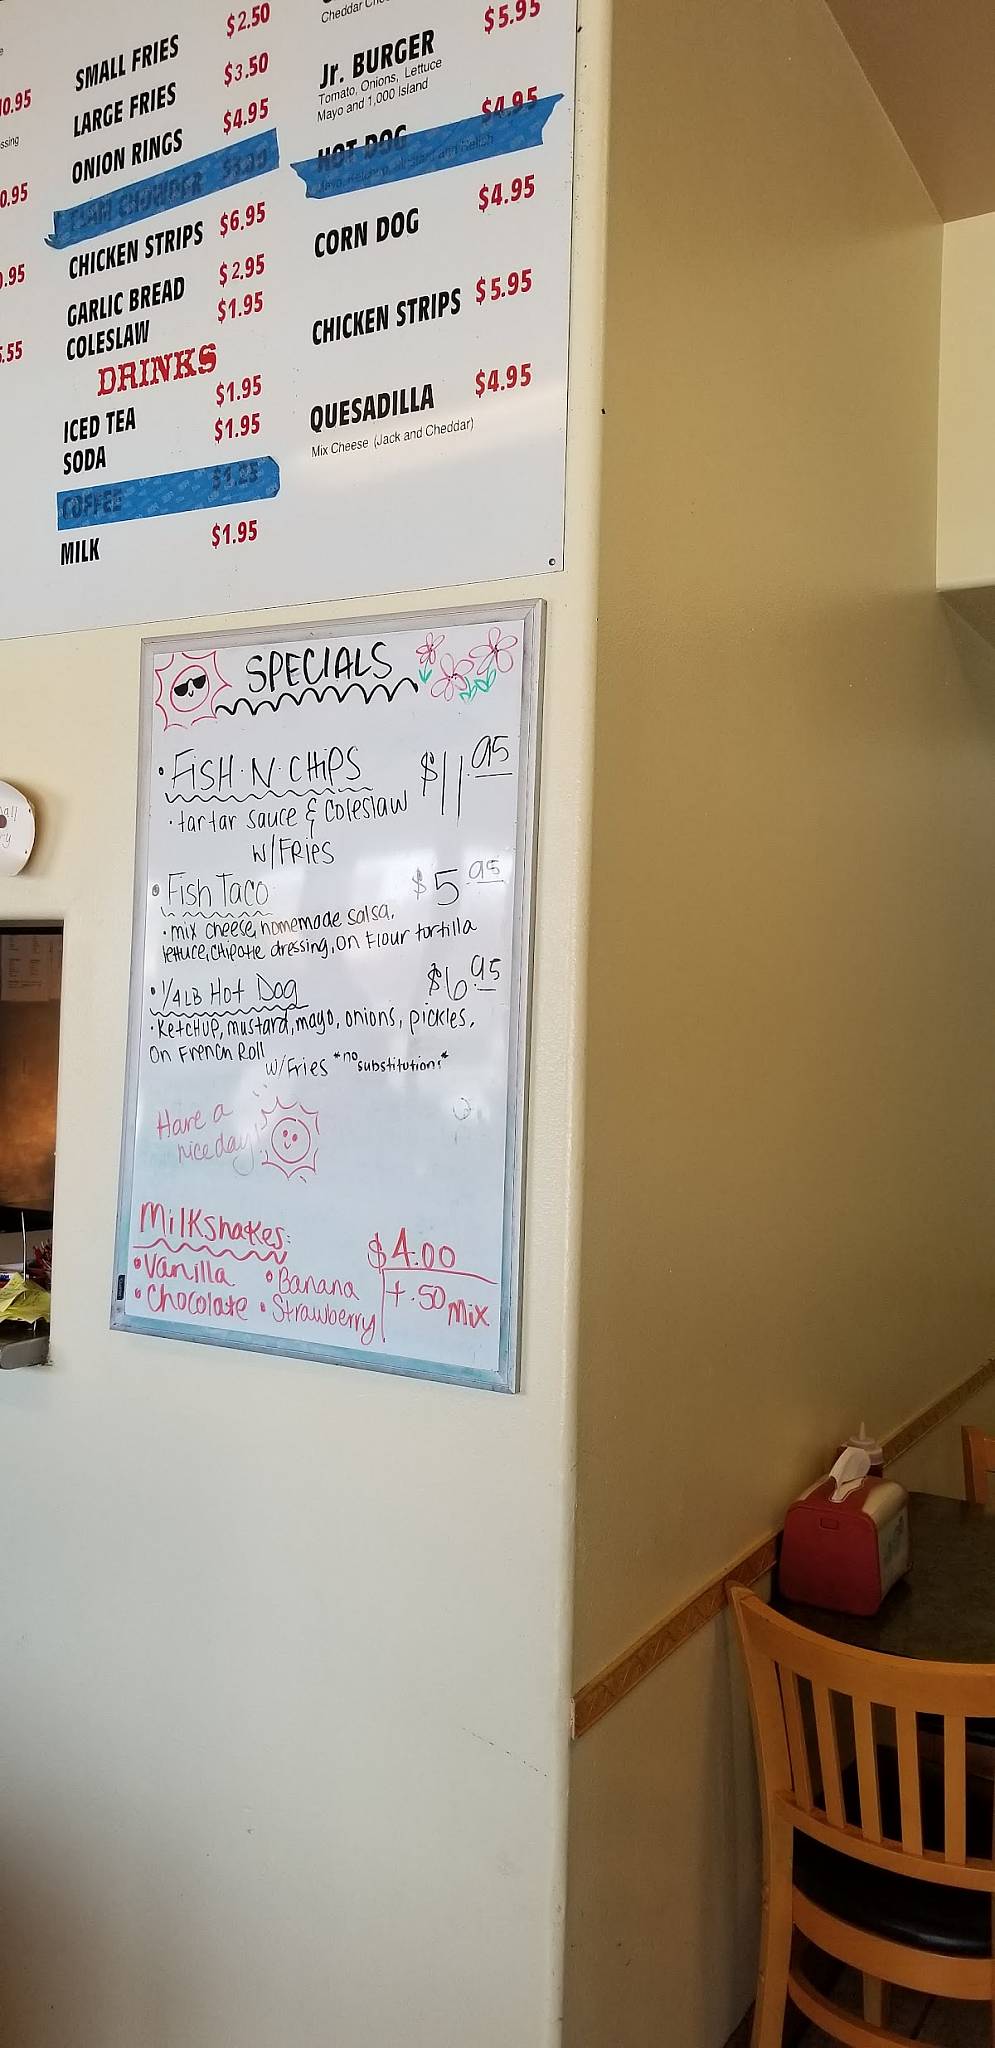 10.95
ssing
0.95
.95
.55
$2.50
SMALL FRIES $3.50
LARGE FRIES $4.95
ONION RINGS
CLAM CHOWDER
CHICKEN STRIPS $6.95
GARLIC BREAD $2.95
COLESLAW $1.95
DRINKS
ICED TEA $1.95
SODA $1.95
COFFEE $1.25
MILK $1.95
$5.95
Jr. BURGER
Tomato, Onions, Lettuce
Mayo and 1,000 Island
HOT DOG $4.95
CORN DOG $4.95
CHICKEN STRIPS $5.95
QUESADILLA $4.95
Mix Cheese (Jack and Cheddar)
SPECIALS
• FISH·N·CHIPS $11.95
• tartar sauce & Coleslaw
W/FRIES
• Fish Taco $5.95
• mix cheese, homemade salsa,
lettuce, chipotle dressing, on flour tortilla
• 1/4 LB Hot Dog $6.95
• Ketchup, mustard, mayo, onions, pickles,
On French Roll
W/Fries *no substitutions*
Have a
nice day!
Milkshakes: $4.00
• Vanilla • Banana
• Chocolate • Strawberry
+.50 Mix